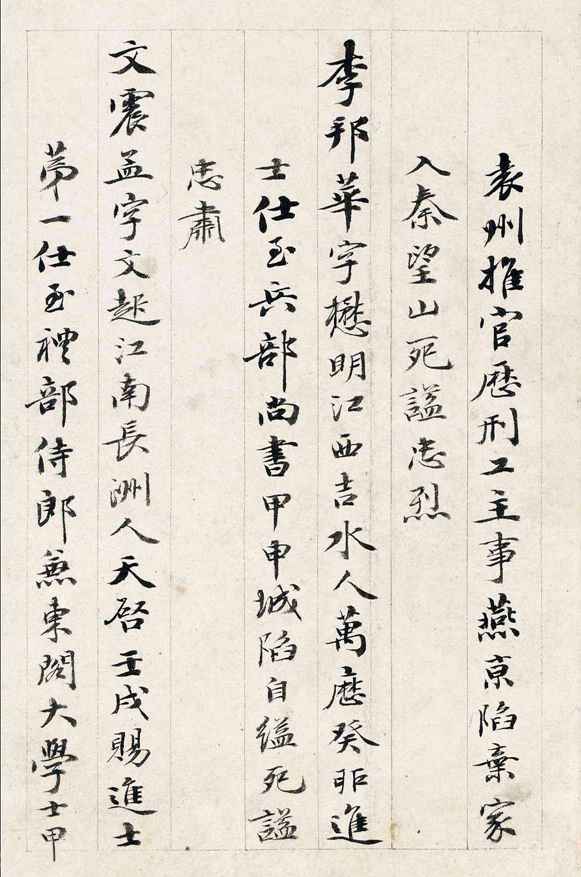 袁州推官歷刑工主事燕京陷棄家
入秦望山死謚忠烈
李邦華字懋明江西吉水人萬曆癸卯進
士仕至兵部尚書甲申城陷自縊死謚
忠肅
文震孟字文起江南長洲人天啓壬戌賜進士
第一仕至禮部侍郎兼東閣大學士甲